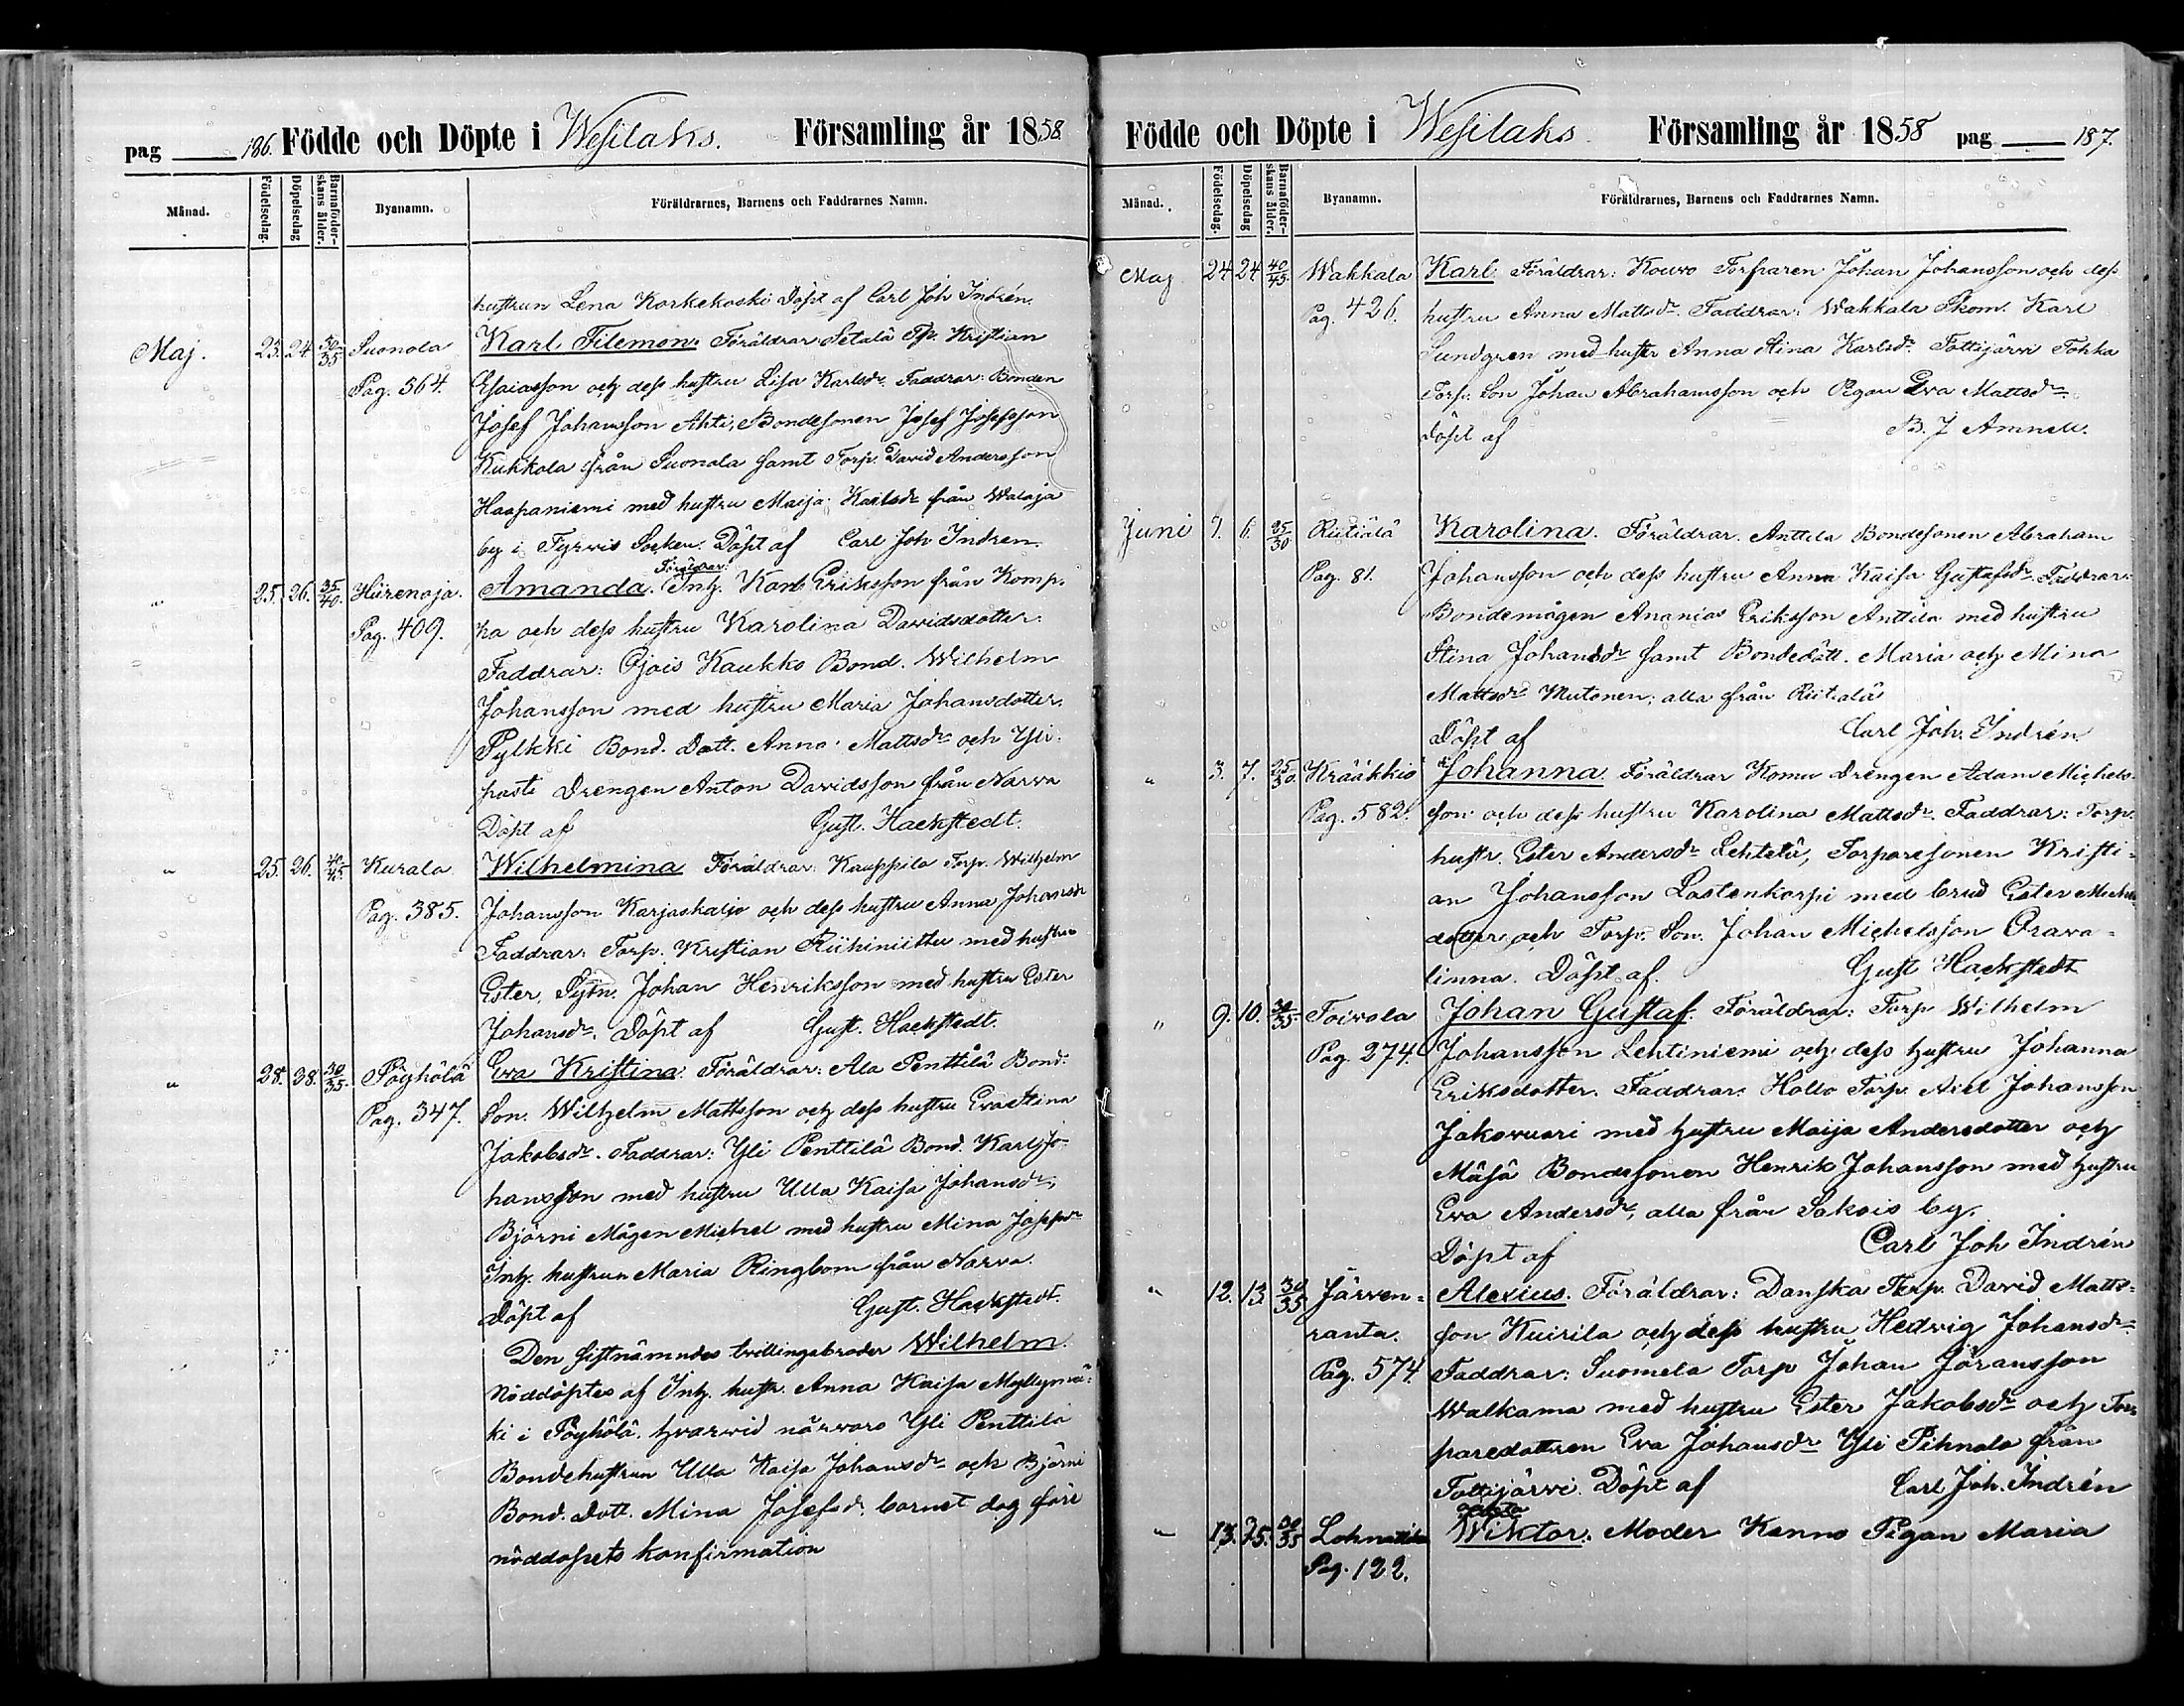 pag 186. Födde och Döpte i Wesilaks. Församling år 1858.
Månad. Födelsedag. Döpelsedag Barnaföderskans ålder. Byanamn. Föräldrarnes, Barnens och Faddrarnes Namn.
hustrun Lena Korkekoski Döpt af Carl Joh Indrén.
Maj. 23. 24 30/35 Suonola Karl Filemon. Föräldrar Setalä Tp. Kristian
Pag. 364. Esaiasson och dess hustru Lisa Karlsdr. Faddrar: Bonden
Josef Johansson Ahti, Bondesonen Josef Josefsson
Kukkola från Suonola samt Torp. David Andersson
Haapaniemi med hustru Maija Karlsdr från Walaja
by i Tyrvis Socken. Döpt af Carl Joh Indren.
Föräldrar:
" 25. 26. 35/40. Hiirenoja. Amanda. Inh. Karl Eriksson från Komp-
Pag. 409. pa och dess hustru Karolina Davidsdotter.
Faddrar: Ojois Kaukko Bond. Wilhelm
Johansson med hustru Maria Johansdotter,
Pylkki Bond. Dott. Anna Mattsdr och Yli-
pasti Drengen Anton Davidsson från Narva
Döpt af Gust. Hackstedt.
" 25. 26. 40/45. Kurala Wilhelmina Föräldrar: Kauppila Torp. Wilhelm
Pag. 385. Johansson Karjaskaljo och dess hustru Anna Johansdr
Faddrar: Torp. Kristian Riihiniittu med hustru
Ester, Sytn. Johan Henriksson med hustru Ester
Johansdr. Döpt af Gust. Hackstedt.
" 28. 28. 30/35. Pöyhölä Eva Kristina. Föräldrar: Ala Penttilä Bond.
Pag. 347. Son. Wilhelm Mattsson och dess hustru Eva Stina
Jakobsdr. Faddrar: Yli Penttilä Bond. Karl Jo-
hansson med hustru Ulla Kaisa Johansdr,
Björni Mågen Michel med hustru Mina Josefsdr
Inh. hustrun Maria Ringbom från Narva.
Döpt af Gust. Hackstedt.
Den sistnämndes tvillingsbroder Wilhelm.
nöddöptes af Inh. hustr. Anna Kaisa Myllymä-
ki i Pöyhölä, hvarvid närvaro Yli Penttilä
Bondehustrun Ulla Kaisa Johansdr och Björni
Bond. Dott. Mina Josefsdr. barnet dog före
nöddopets konfirmation
Födde och Döpte i Wesilaks Församling år 1858 pag 187.
Månad. Födelsedag. Döpelsedag Barnaföderskans ålder. Byanamn. Föräldrarnes, Barnens och Faddrarnes Namn.
Maj 24 24 40/45. Wakkala Karl Föräldrar: Kouvo Torparen Johan Johansson och dess
Pag. 426. hustru Anna Mattsdr. Faddrar: Wakkala Skom. Karl
Sundgren med hustr Anna Stina Karlsdr. Tottijärvi Tohka
Torp. Son Johan Abrahamsson och Pigan Eva Mattsdr
Döpt af B. J Amnell.
Juni 1. 6. 25/30 Riitiälä Karolina. Föräldrar. Anttila Bondesonen Abraham
Pag. 81. Johansson och dess hustru Anna Kaisa Gustafsdr. Faddrar:
Bondemågen Ananias Eriksson Anttila med hustru
Stina Johansdr samt Bondedött. Maria och Mina
Mattsdr Mutonen, alla från Riitialä
Döpt af Carl Joh. Indrén.
" 3. 7. 25/30. Krääkkiö Johanna. Föräldrar Komu Drengen Adam Michels-
Pag. 582. son och dess hustru Karolina Mattsdr. Faddrar: Torp.
hustr. Ester Andersdr Lehtelä, Torparesonen Kristi-
an Johansson Lastenkorpi med brud Ester Michels
dotter och Torp. Son. Johan Michelsson Orava-
linna. Döpt af. Gust Hackstedt
" 9. 10. 30/35. Toivola Johan Gustaf. Föräldrar: Torp Wilhelm
Pag. 274. Johansson Lehtiniemi och dess hustru Johanna
Eriksdotter. Faddrar. Hollo Torp. Axel Johansson
Jakovuori med hustru Maija Andersdotter och
Mäsä Bondesonen Henrik Johansson med hustru
Eva Andersdr, alla från Sakois by.
Döpt af Carl Joh Indrén
" 12. 13 30/35 Järven- Alexius. Föräldrar: Danska Torp. David Matts-
ranta. son Kuirila och dess hustru Hedvig Johansdr
Pag. 574 Faddrar: Suomela Torp Johan Göransson
Walkama med hustru Ester Jakobsdr och Tor-
paredottren Eva Johansdr Yli Pihnala från
Tottijärvi. Döpt af Carl Joh. Indrén
" 13. 25. 30/35 Wiktor. Moder Kenno Pigan Maria
Pag. 122.